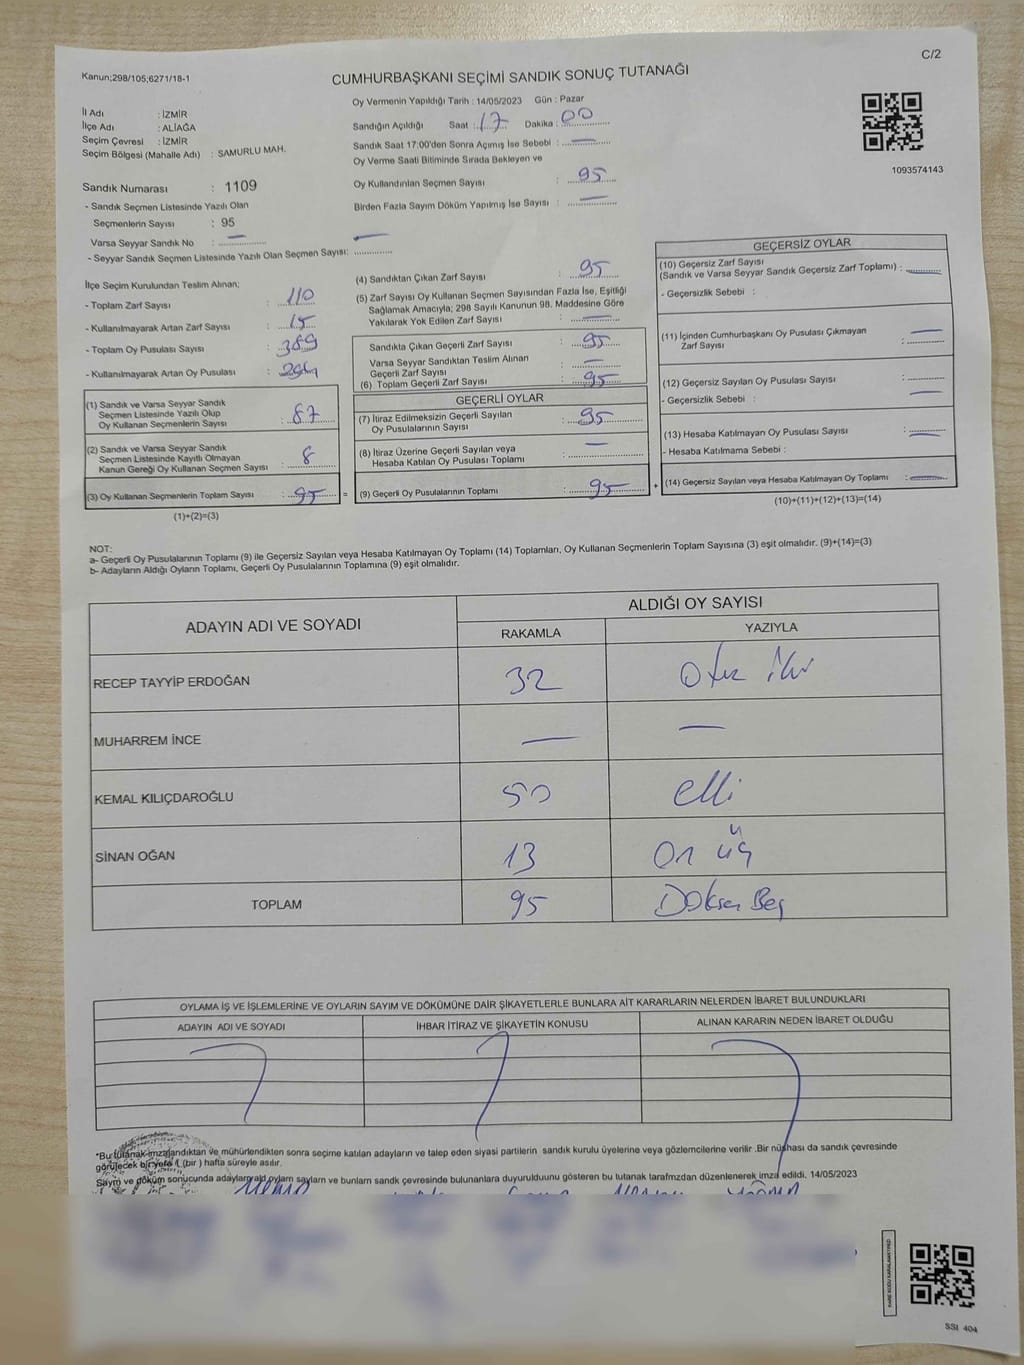 C/2
Kanun;298/105;6271/18-1
CUMHURBAŞKANI SEÇİMİ SANDIK SONUÇ TUTANAĞI
İl Adı : İZMİR
İlçe Adı : ALİAĞA
Seçim Çevresi : İZMİR
Seçim Bölgesi (Mahalle Adı) : SAMURLU MAH.
Sandık Numarası : 1109
- Sandık Seçmen Listesinde Yazılı Olan
Seçmenlerin Sayısı : 95
Varsa Seyyar Sandık No : —
- Seyyar Sandık Seçmen Listesinde Yazılı Olan Seçmen Sayısı: —
Oy Vermenin Yapıldığı Tarih : 14/05/2023 Gün : Pazar
Sandığın Açıldığı Saat : 17 Dakika : 00
Sandık Saat 17:00'den Sonra Açımış İse Sebebi : —
Oy Verme Saati Bitiminde Sırada Bekleyen ve
Oy Kullandırılan Seçmen Sayısı : 95
Birden Fazla Sayım Döküm Yapılmış İse Sayısı : —
1093574143
İlçe Seçim Kurulundan Teslim Alınan;
- Toplam Zarf Sayısı : 110
- Kullanılmayarak Artan Zarf Sayısı : 15
- Toplam Oy Pusulası Sayısı : 389
- Kullanılmayarak Artan Oy Pusulası : 294
(1) Sandık ve Varsa Seyyar Sandık
Seçmen Listesinde Yazılı Olup
Oy Kullanan Seçmenlerin Sayısı : 87
(2) Sandık ve Varsa Seyyar Sandık
Seçmen Listesinde Kayıtlı Olmayan
Kanun Gereği Oy Kullanan Seçmen Sayısı : 8
(3) Oy Kullanan Seçmenlerin Toplam Sayısı : 95 =
(1)+(2)=(3)
(4) Sandıktan Çıkan Zarf Sayısı : 95
(5) Zarf Sayısı Oy Kullanan Seçmen Sayısından Fazla İse, Eşitliği
Sağlamak Amacıyla; 298 Sayılı Kanunun 98. Maddesine Göre
Yakılarak Yok Edilen Zarf Sayısı : —
Sandıkta Çıkan Geçerli Zarf Sayısı : 95
Varsa Seyyar Sandıktan Teslim Alınan
Geçerli Zarf Sayısı : —
(6) Toplam Geçerli Zarf Sayısı : 95
GEÇERLİ OYLAR
(7) İtiraz Edilmeksizin Geçerli Sayılan
Oy Pusulalarının Sayısı : 95
(8) İtiraz Üzerine Geçerli Sayılan veya
Hesaba Katılan Oy Pusulası Toplamı : —
(9) Geçerli Oy Pusulalarının Toplamı : 95 +
GEÇERSİZ OYLAR
(10) Geçersiz Zarf Sayısı
(Sandık ve Varsa Seyyar Sandık Geçersiz Zarf Toplamı) : —
- Geçersizlik Sebebi :
(11) İçinden Cumhurbaşkanı Oy Pusulası Çıkmayan
Zarf Sayısı : —
(12) Geçersiz Sayılan Oy Pusulası Sayısı :
- Geçersizlik Sebebi : —
(13) Hesaba Katılmayan Oy Pusulası Sayısı : —
- Hesaba Katılmama Sebebi :
(14) Geçersiz Sayılan veya Hesaba Katılmayan Oy Toplamı : —
(10)+(11)+(12)+(13)=(14)
NOT:
a- Geçerli Oy Pusulalarının Toplamı (9) ile Geçersiz Sayılan veya Hesaba Katılmayan Oy Toplamı (14) Toplamları, Oy Kullanan Seçmenlerin Toplam Sayısına (3) eşit olmalıdır. (9)+(14)=(3)
b- Adayların Aldığı Oyların Toplamı, Geçerli Oy Pusulalarının Toplamına (9) eşit olmalıdır.
ADAYIN ADI VE SOYADI ALDIĞI OY SAYISI
RAKAMLA YAZIYLA
RECEP TAYYİP ERDOĞAN 32 Otuz iki
MUHARREM İNCE — —
KEMAL KILIÇDAROĞLU 50 elli
SİNAN OĞAN 13 On üç
TOPLAM 95 Doksan Beş
OYLAMA İŞ VE İŞLEMLERİNE VE OYLARIN SAYIM VE DÖKÜMÜNE DAİR ŞİKAYETLERLE BUNLARA AİT KARARLARIN NELERDEN İBARET BULUNDUKLARI
ADAYIN ADI VE SOYADI İHBAR İTİRAZ VE ŞİKAYETİN KONUSU ALINAN KARARIN NEDEN İBARET OLDUĞU
*Bu tutanak imzalandıktan ve mühürlendikten sonra seçime katılan adayların ve talep eden siyasi partilerin sandık kurulu üyelerine veya gözlemcilerine verilir. Bir nüshası da sandık çevresinde
görülecek bir yere 1 (bir ) hafta süreyle asılır.
Sayım ve döküm sonucunda adayların aldığı oyların sayıları ve bunların sandık çevresinde bulunanlara duyurulduğunu gösteren bu tutanak tarafımızdan düzenlenerek imza edildi. 14/05/2023
KARE KODU KARALAMAYINIZ
SSI 404